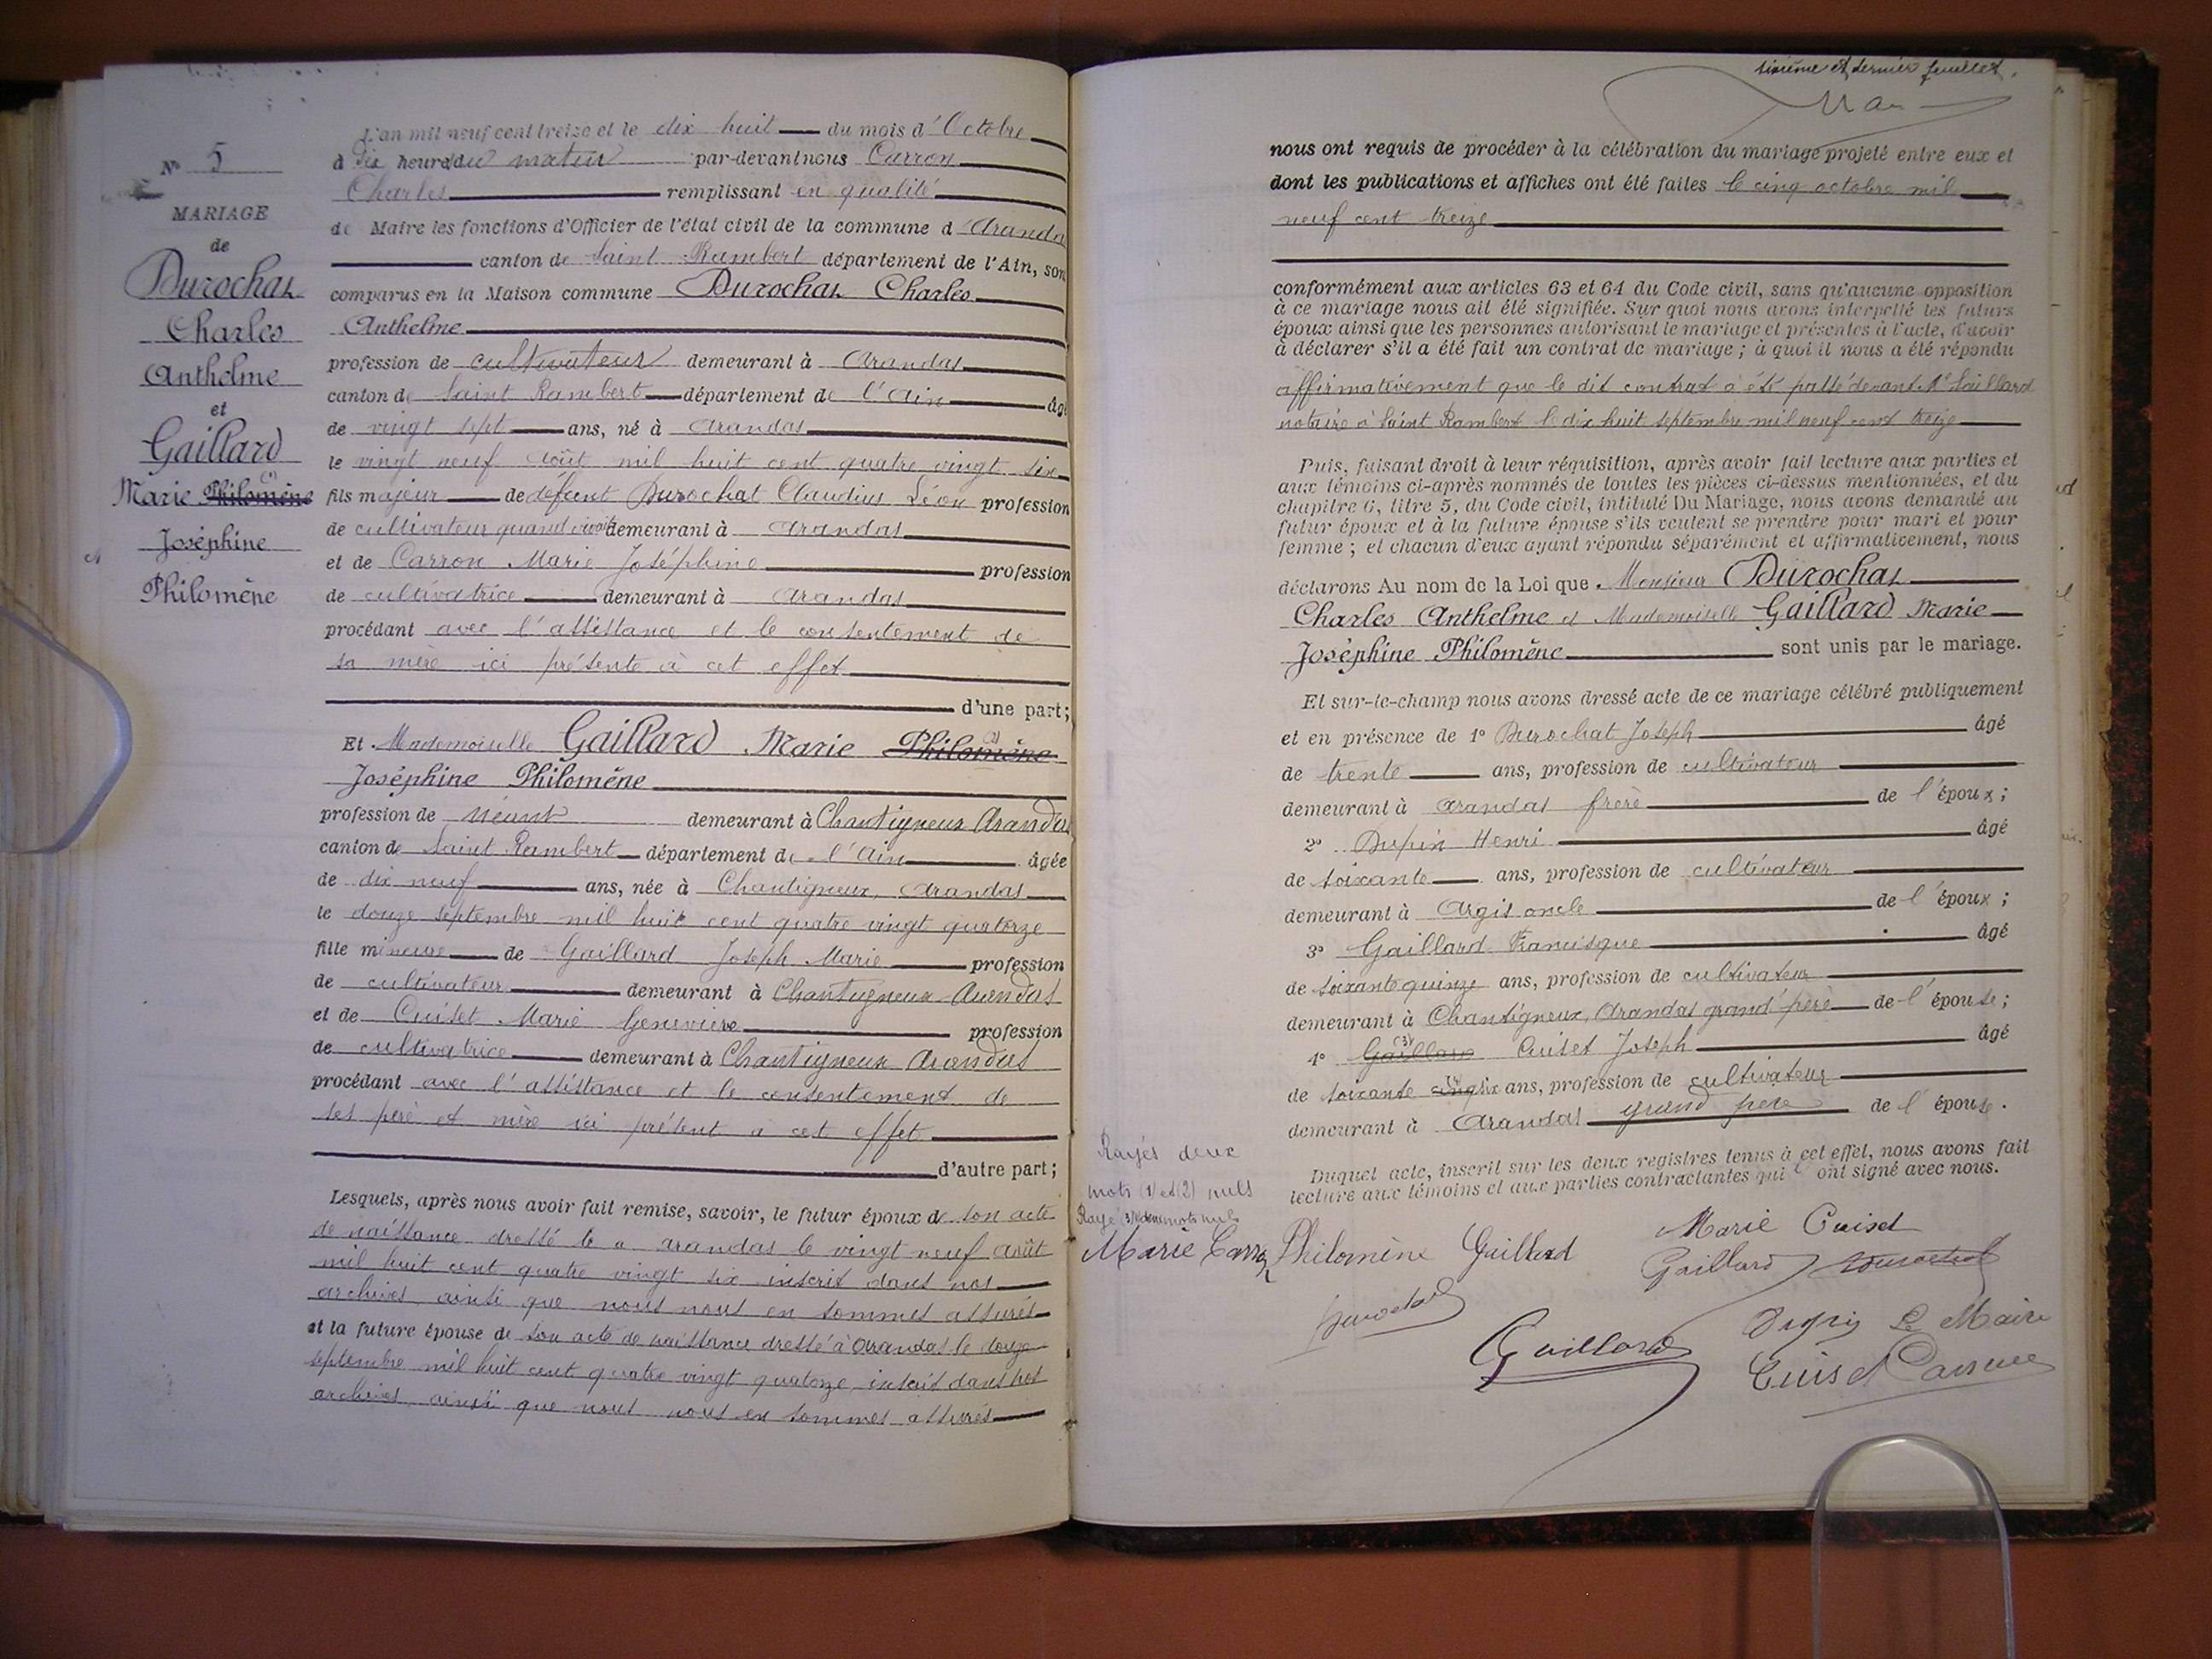 Nº 5
MARIAGE
de
Durochat
Charles
Anthelme
et
Gaillard
Marie Philomène
Joséphine
Philomène
L'an mil neuf cent treize et le dix huit du mois d'Octobre
à dix heures du matin par-devant nous Carron
Charles remplissant en qualité
de Maire les fonctions d'Officier de l'état civil de la commune d'Arandas
canton de Saint Rambert département de l'Ain, son
comparus en la Maison commune Durochat Charles
Anthelme
profession de cultivateur demeurant à Arandas
canton de Saint Rambert département de l'Ain âgé
de vingt sept ans, né à Arandas
le vingt neuf août mil huit cent quatre vingt six
fils majeur de défunt Durochat Claudius Léon profession
de cultivateur quand vivait demeurant à Arandas
et de Carron Marie Joséphine profession
de cultivatrice demeurant à Arandas
procédant avec l'assistance et le consentement de
sa mère ici présente à cet effet
d'une part;
Et Mademoiselle Gaillard Marie Philomène
Joséphine Philomène
profession de néant demeurant à Chantigneux Arandas
canton de Saint Rambert département de l'Ain âgée
de dix neuf ans, née à Chantigneux, Arandas
le douze septembre mil huit cent quatre vingt quatorze
fille mineure de Gaillard Joseph Marie profession
de cultivateur demeurant à Chantigneux Arandas
et de Cuiset Marie Geneviève profession
de cultivatrice demeurant à Chantigneux Arandas
procédant avec l'assistance et le consentement de
ses père et mère ici présent à cet effet
d'autre part;
Lesquels, après nous avoir fait remise, savoir, le futur époux de son acte
de naissance dressé le a Arandas le vingt neuf août
mil huit cent quatre vingt six inscrit dans nos
archives ainsi que nous nous en sommes assurés
et la future épouse de son acte de naissance dressé à Arandas le douze
septembre mil huit cent quatre vingt quatorze, inscrit dans nos
archives ainsi que nous nous en sommes assurés
sixième et dernier feuillet.
nous ont requis de procéder à la célébration du mariage projeté entre eux et
dont les publications et affiches ont été faites le cinq octobre mil
neuf cent treize
conformément aux articles 63 et 64 du Code civil, sans qu'aucune opposition
à ce mariage nous ait été signifiée. Sur quoi nous avons interpellé les futurs
époux ainsi que les personnes autorisant le mariage et présentes à l'acte, d'avoir
à déclarer s'il a été fait un contrat de mariage; à quoi il nous a été répondu
affirmativement que le dit contrat a été passé devant Me Saillard
notaire à Saint Rambert le dix huit septembre mil neuf cent treize
Puis, faisant droit à leur réquisition, après avoir fait lecture aux parties et
aux témoins ci-après nommés de toutes les pièces ci-dessus mentionnées, et du
chapitre 6, titre 5, du Code civil, intitulé Du Mariage, nous avons demandé au
futur époux et à la future épouse s'ils veulent se prendre pour mari et pour
femme; et chacun d'eux ayant répondu séparément et affirmativement, nous
déclarons Au nom de la Loi que Monsieur Durochat
Charles Anthelme et Mademoiselle Gaillard Marie
Joséphine Philomène sont unis par le mariage.
Et sur-le-champ nous avons dressé acte de ce mariage célébré publiquement
et en présence de 1º Durochat Joseph âgé
de trente ans, profession de cultivateur
demeurant à Arandas frère de l'époux;
2º Dupin Henri âgé
de soixante ans, profession de cultivateur
demeurant à Argis oncle de l'époux;
3º Gaillard Francisque âgé
de soixante quinze ans, profession de cultivateur
demeurant à Chantigneux, Arandas grand'père de l'épouse;
4º Gaillard (3) Cuiset Joseph âgé
de soixante cinq six ans, profession de cultivateur
demeurant à Arandas grand père de l'épouse.
Duquel acte, inscrit sur les deux registres tenus à cet effet, nous avons fait
lecture aux témoins et aux parties contractantes qui ont signé avec nous.
Rayés deux
mots (1) et (2) nuls
Marie Carron Philomène Gaillard Marie Cuiset
Gaillard Durochat
Durochat
Gaillard Dupin Le Maire
Cuiset Carron